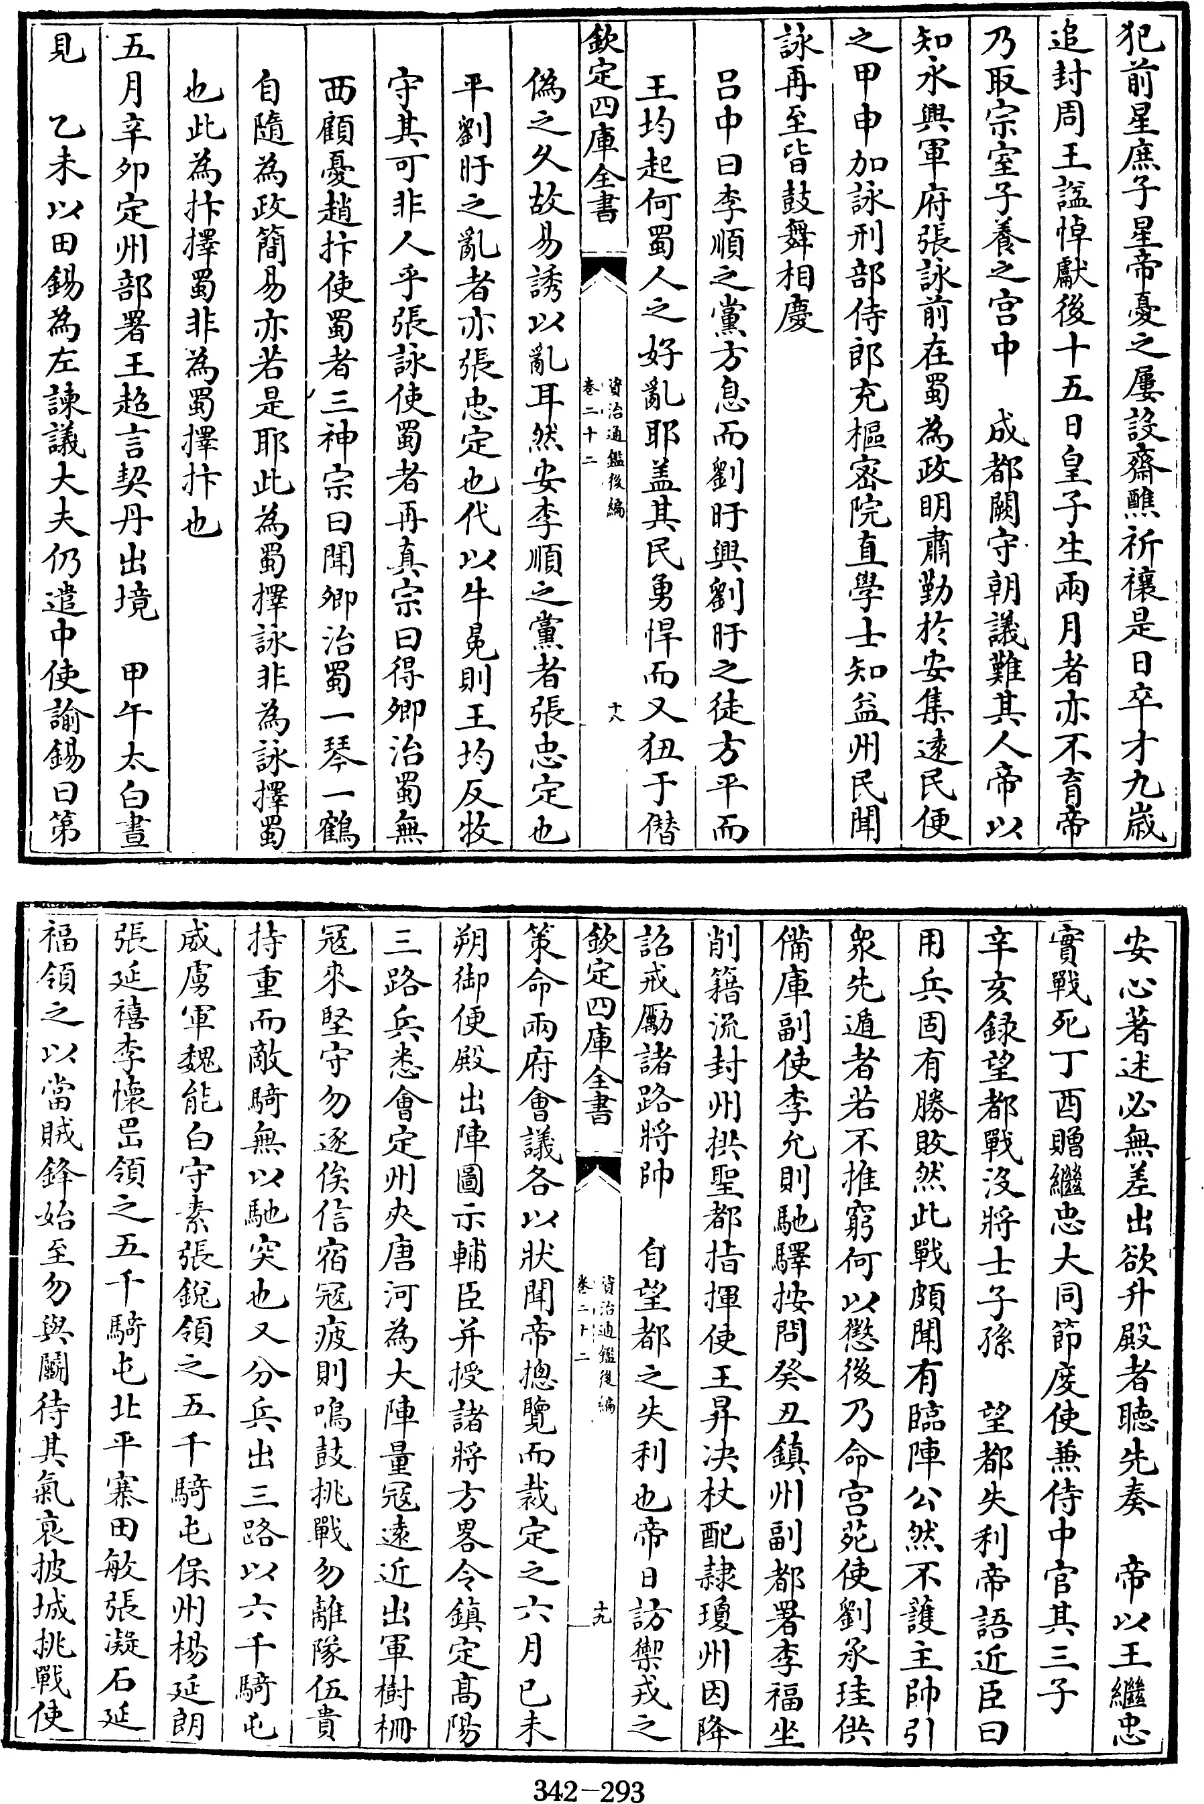 犯前星庶子星帝憂之屢設齋醮祈禳是日卒才九歳
追封周王諡悼獻後十五日皇子生兩月者亦不育帝
乃取宗室子養之宫中　成都闕守朝議難其人帝以
知永興軍府張詠前在蜀為政明肅勤於安集遠民便
之甲申加詠刑部侍郎充樞密院直學士知益州民聞
詠再至皆鼓舞相慶
呂中曰李順之黨方息而劉旴興劉旴之徒方平而
王均起何蜀人之好亂耶盖其民勇悍而又狃于僭
欽定四庫全書
資治通鑑後編
卷二十二
十八
偽之久故易誘以亂耳然安李順之黨者張忠定也
平劉旴之亂者亦張忠定也代以牛冕則王均反牧
守其可非人乎張詠使蜀者再真宗曰得卿治蜀無
西顧憂趙抃使蜀者三神宗曰聞卿治蜀一琴一鶴
自隨為政簡易亦若是耶此為蜀擇詠非為詠擇蜀
也此為抃擇蜀非為蜀擇抃也
五月辛卯定州部署王超言契丹出境　甲午太白晝
見　乙未以田錫為左諫議大夫仍遣中使諭錫曰第
安心著述必無差出欲升殿者聴先奏　帝以王繼忠
實戰死丁酉贈繼忠大同節度使兼侍中官其三子
辛亥録望都戰沒將士子孫　望都失利帝語近臣曰
用兵固有勝敗然此戰頗聞有臨陣公然不護主帥引
衆先遁者若不推窮何以懲後乃命宫苑使劉承珪供
備庫副使李允則馳驛按問癸丑鎮州副都署李福坐
削籍流封州拱聖都指揮使王昇决杖配隷瓊州因降
詔戒勵諸路將帥　自望都之失利也帝日訪禦戎之
欽定四庫全書
資治通鑑後編
卷二十二
十九
策命兩府會議各以狀聞帝揔覽而裁定之六月己未
朔御便殿出陣圖示輔臣并授諸將方畧令鎮定髙陽
三路兵悉會定州夾唐河為大陣量冦遠近出軍樹柵
冦來堅守勿逐俟信宿冦疲則鳴鼓挑戰勿離隊伍貴
持重而敵騎無以馳突也又分兵出三路以六千騎屯
威虜軍魏能白守素張銳領之五千騎屯保州楊延朗
張延禧李懷岊領之五千騎屯北平寨田敏張凝石延
福領之以當賊鋒始至勿與鬬待其氣衰披城挑戰使
342-293